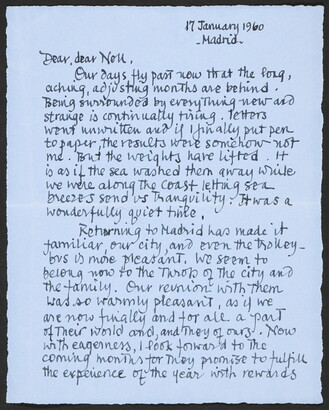 17 January 1960
- Madrid -
Dear, dear Nell.
Our days fly past now that the long,
aching, adjusting months are behind.
Being surrounded by everything new and
strange is continually tiring. Letters
went unwritten and if I finally put pen
to paper, the results were somehow not
me. But the weights have lifted. It
is as if the sea washed them away while
we were along the coast letting sea
breezes send us tranquility. It was a
wonderfully quiet time.
Returning to Madrid has made it
familiar, our city, and even the trolley-
bus is more pleasant. We seem to
belong now to the throb of the city and
the family. Our reunion with them
was so warmly pleasant, as if we
are now finally and for all a part
of their world and, and they of ours. Now
with eagerness, I look forward to the
coming months for they promise to fulfill
the experience of the year with rewards